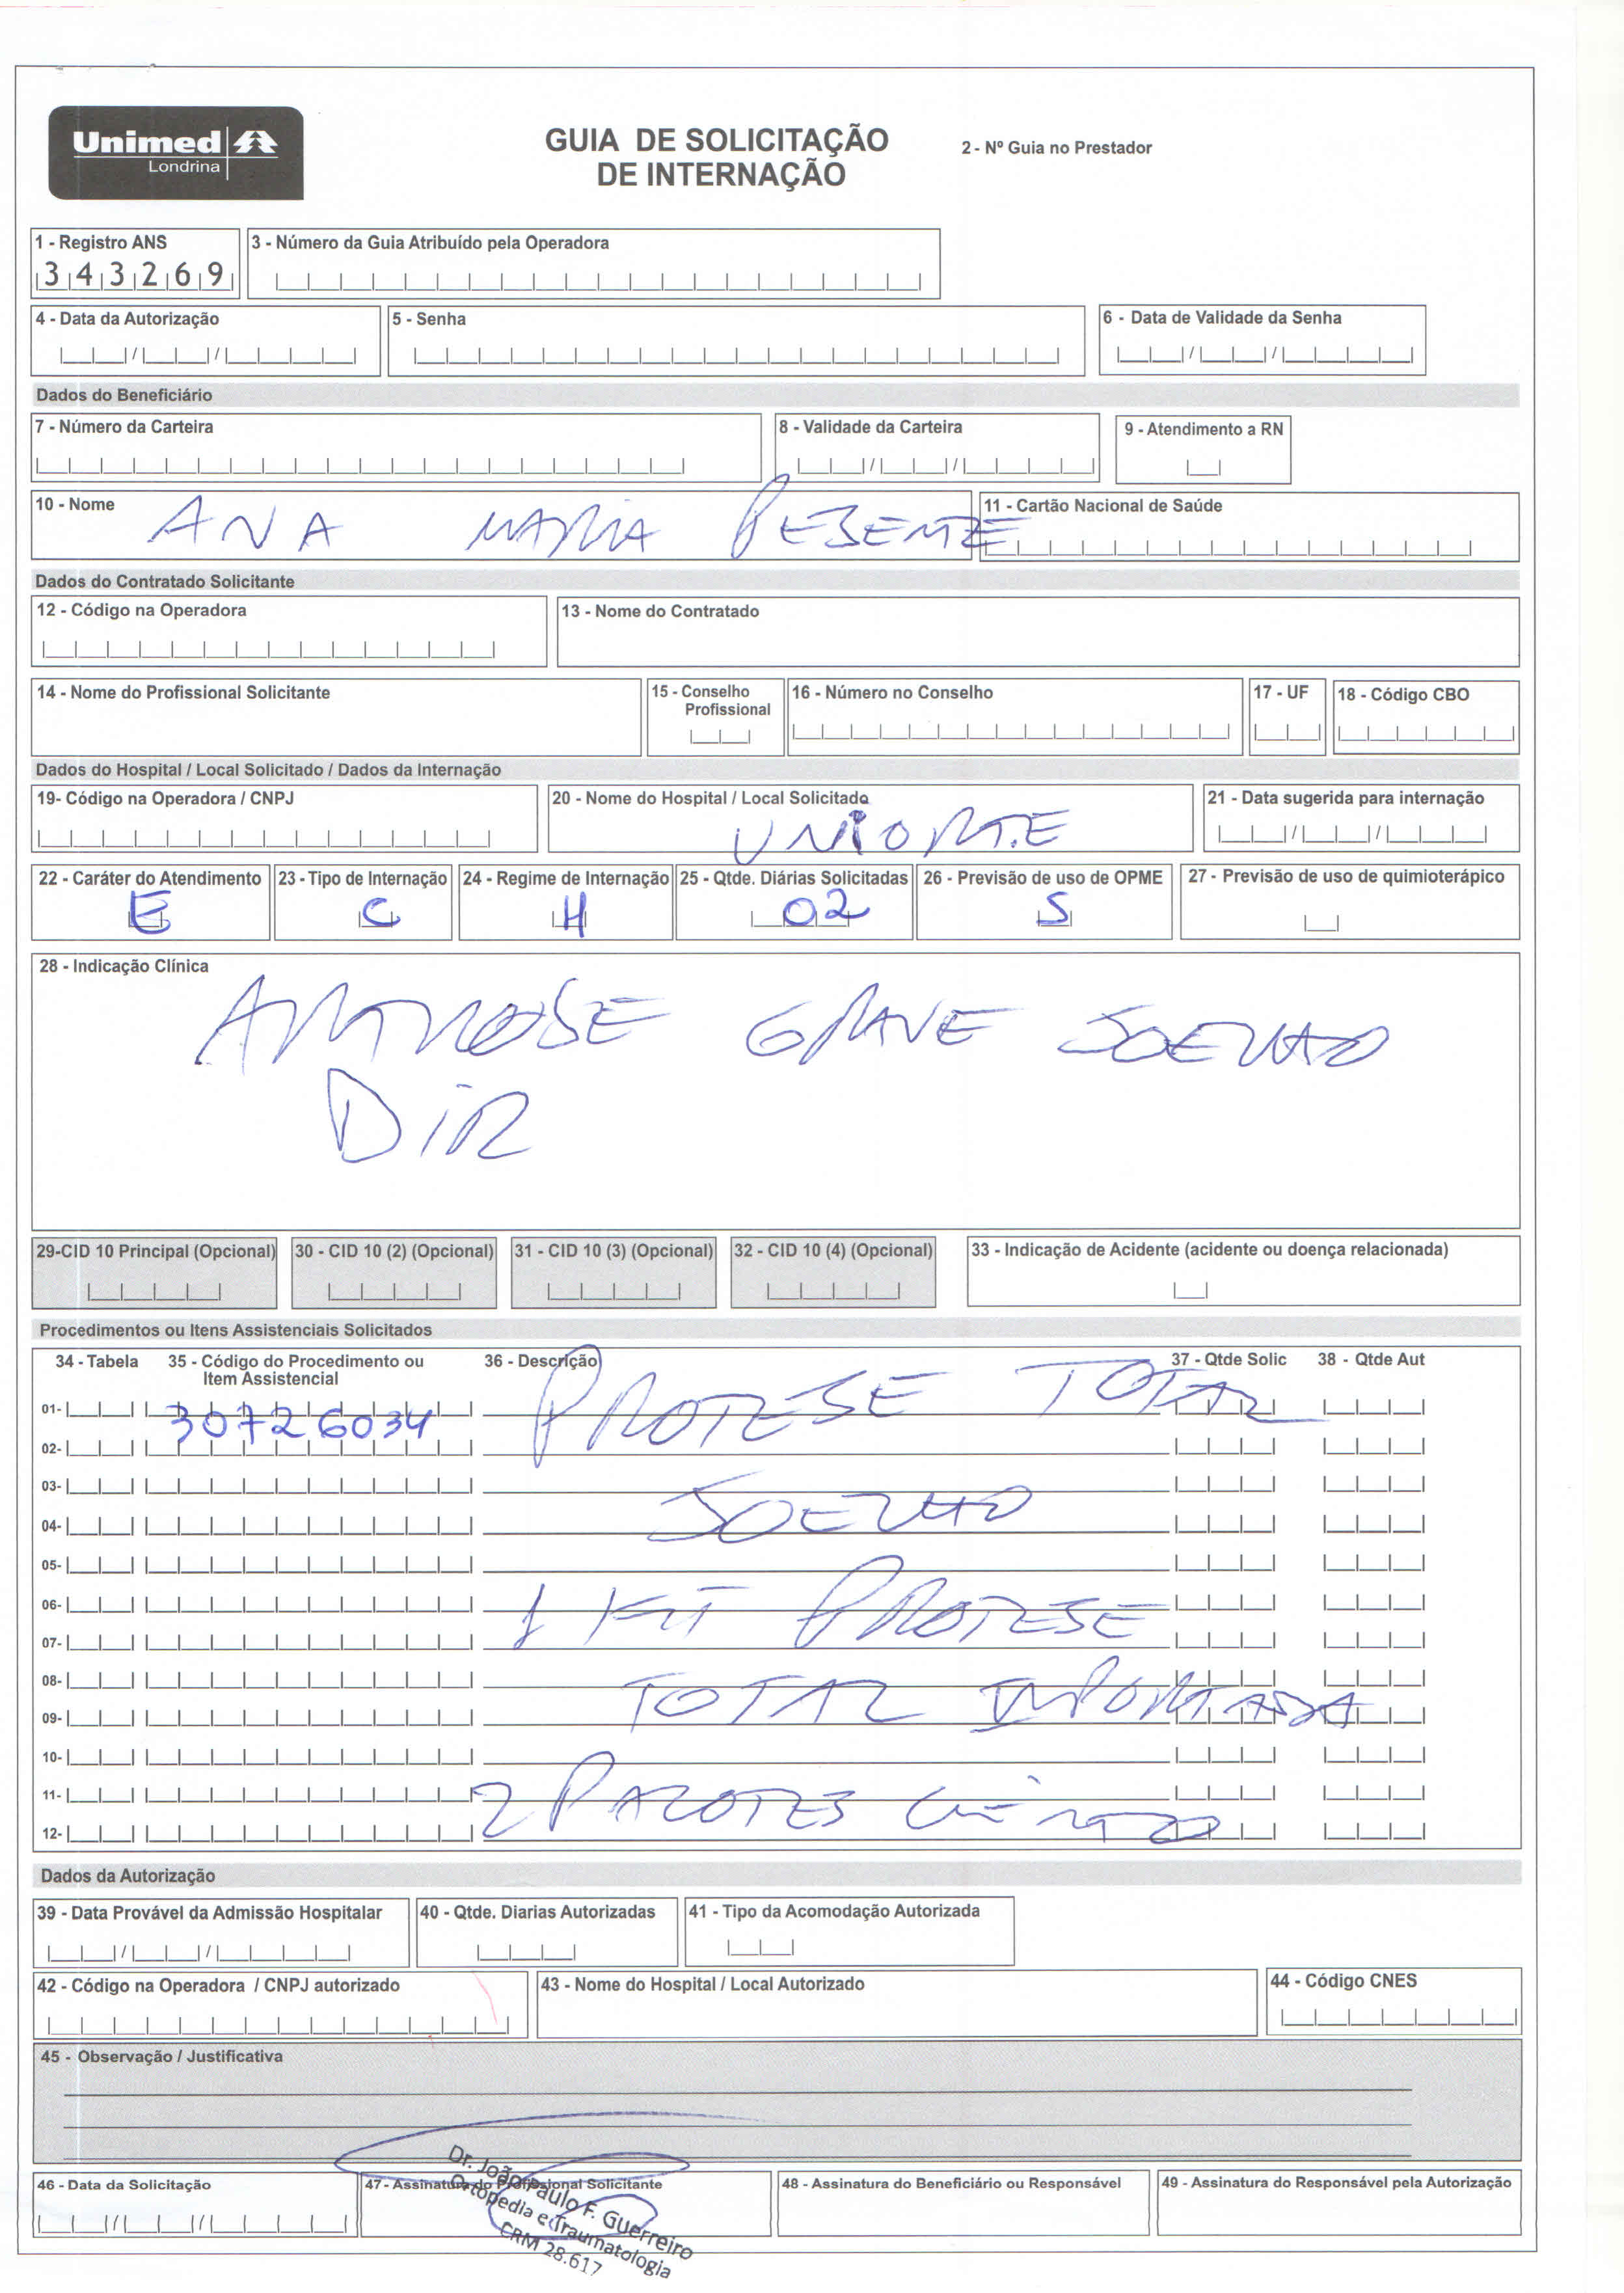 Unimed
Londrina
GUIA DE SOLICITAÇÃO
DE INTERNAÇÃO
2 - Nº Guia no Prestador
1 - Registro ANS
343269
3 - Número da Guia Atribuído pela Operadora
4 - Data da Autorização
5 - Senha
6 - Data de Validade da Senha
Dados do Beneficiário
7 - Número da Carteira
8 - Validade da Carteira
9 - Atendimento a RN
10 - Nome
ANA MARIA PESENTE
11 - Cartão Nacional de Saúde
Dados do Contratado Solicitante
12 - Código na Operadora
13 - Nome do Contratado
14 - Nome do Profissional Solicitante
15 - Conselho Profissional
16 - Número no Conselho
17 - UF
18 - Código CBO
Dados do Hospital / Local Solicitado / Dados da Internação
19- Código na Operadora / CNPJ
20 - Nome do Hospital / Local Solicitado
UNIORTE
21 - Data sugerida para internação
22 - Caráter do Atendimento
E
23 - Tipo de Internação
C
24 - Regime de Internação
H
25 - Qtde. Diárias Solicitadas
02
26 - Previsão de uso de OPME
S
27 - Previsão de uso de quimioterápico
28 - Indicação Clínica
ARTROSE GRAVE JOELHO
DIR
29-CID 10 Principal (Opcional)
30 - CID 10 (2) (Opcional)
31 - CID 10 (3) (Opcional)
32 - CID 10 (4) (Opcional)
33 - Indicação de Acidente (acidente ou doença relacionada)
Procedimentos ou Itens Assistenciais Solicitados
34 - Tabela
35 - Código do Procedimento ou
Item Assistencial
36 - Descrição
37 - Qtde Solic
38 - Qtde Aut
01- 30726034 PROTESE TOTAL
02-
03-
04- JOELHO
05-
06-
07- 1 KIT PROTESE
08-
09- TOTAL IMPORTADA
10-
11-
12- 2 PACOTES CIMENTO
Dados da Autorização
39 - Data Provável da Admissão Hospitalar
40 - Qtde. Diarias Autorizadas
41 - Tipo da Acomodação Autorizada
42 - Código na Operadora / CNPJ autorizado
43 - Nome do Hospital / Local Autorizado
44 - Código CNES
45 - Observação / Justificativa
46 - Data da Solicitação
47 - Assinatura do Profissional Solicitante
48 - Assinatura do Beneficiário ou Responsável
49 - Assinatura do Responsável pela Autorização
Dr. João Paulo F. Guerreiro
Ortopedia e Traumatologia
CRM 28.617